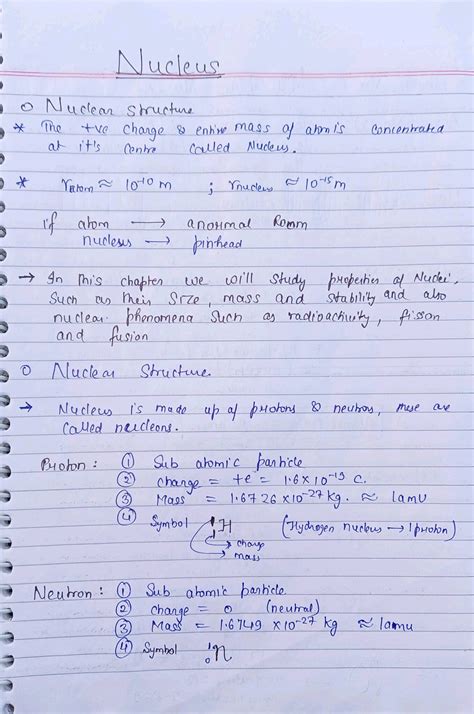 Nucleus
o Nuclear structure
* The +ve charge & entire mass of atom is concentrated
at it's centre called Nucleus.
* r_atom ≈ 10^-10 m ; r_nucleus ≈ 10^-15 m
if atom → a normal Romm
nucleus → pinhead
→ In this chapter we will study properties of Nuclei,
Such as their Size, mass and stability and also
nuclear phenomena Such as radioactivity, fisson
and fusion
o Nuclear Structure
→ Nucleus is made up of protons & neutrons, these are
called neucleons.
Proton : ① Sub atomic particle
② charge = +e = 1.6 × 10^-19 C.
③ Mass = 1.6726 × 10^-27 kg. ≈ 1amu
④ Symbol ¹₁H (Hydrogen nucleus → 1 proton)
→ charge
→ mass
Neutron : ① Sub atomic particle
② charge = 0 (neutral)
③ Mass = 1.6749 × 10^-27 kg ≈ 1amu
④ Symbol ¹₀n